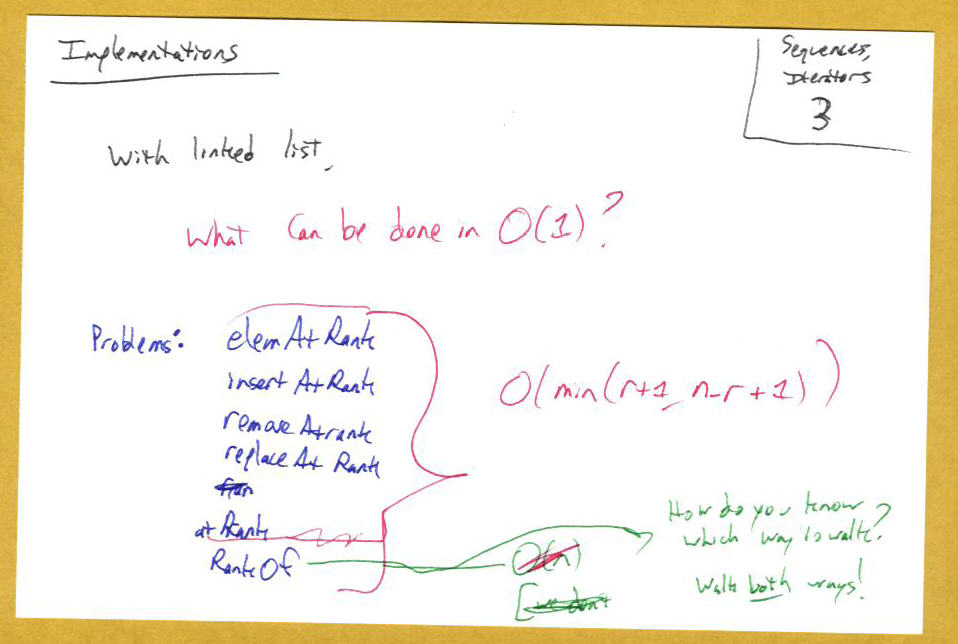 Implementations
Sequences,
Iterators
3
With linked list,
What can be done in O(1)?
Problems:
elemAtRank
insertAtRank
removeAtrank
replaceAtRank
atRank
RankOf
O(min(r+1, n-r+1))
O(n)
How do you know
which way to walk?
Walk both ways!